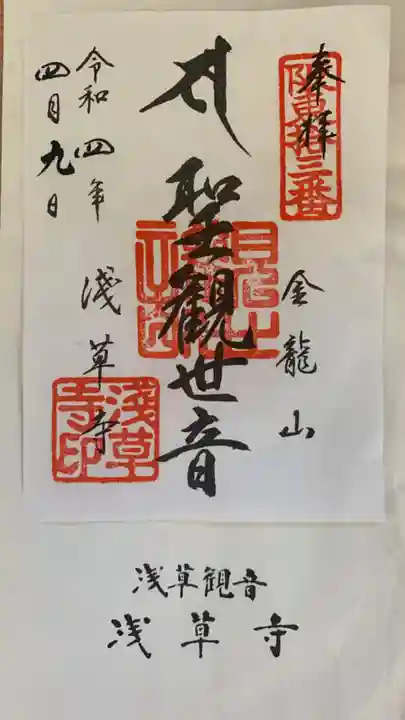 奉拝
坂東拾三番
金龍山
聖観世音
浅草寺
令和四年
四月九日
浅草寺印
浅草観音
浅草寺